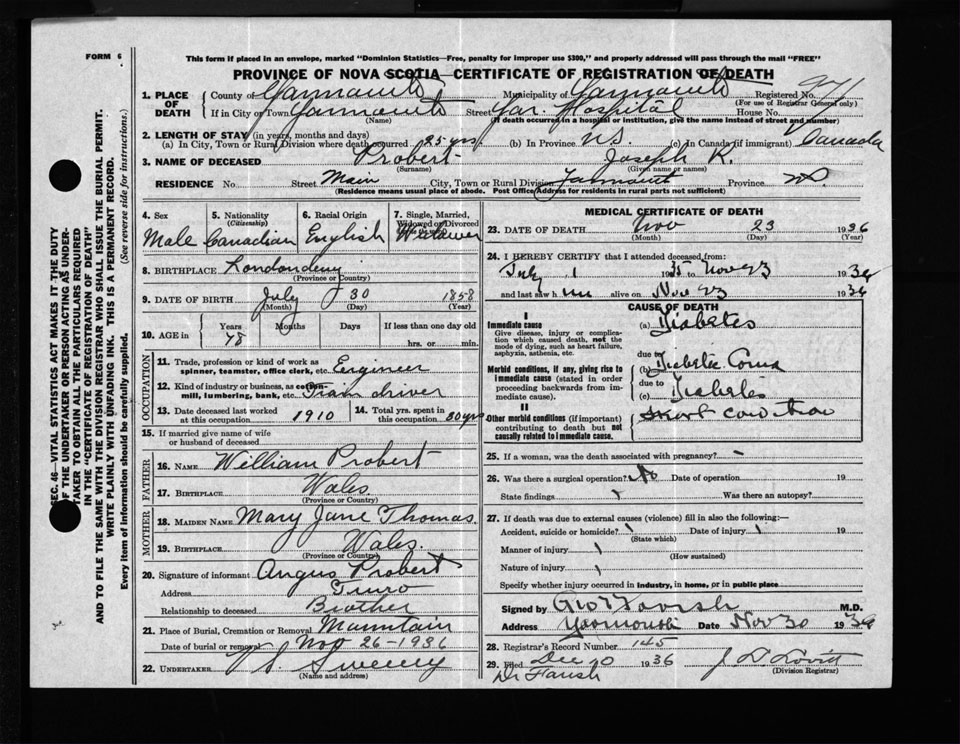 FORM 6
This form if placed in an envelope, marked "Dominion Statistics—Free, penalty for improper use $300," and properly addressed will pass through the mail "FREE"
PROVINCE OF NOVA SCOTIA—CERTIFICATE OF REGISTRATION OF DEATH
1. PLACE OF DEATH County of Yarmouth Municipality of Yarmouth Registered No. 971
(For use of Registrar General only)
If in City or Town Yarmouth Street Yar. Hospital House No.
(Name) (If death occurred in a hospital or institution, give the name instead of street and number)
2. LENGTH OF STAY (in years, months and days)
(a) In City, Town or Rural Division where death occurred 25 yrs. (b) In Province N.S. (c) In Canada (if immigrant) Canada
3. NAME OF DECEASED Probert Joseph K.
(Given name or names)
RESIDENCE No. Street Main City, Town or Rural Division Yarmouth Province N.S.
(Residence means usual place of abode. Post Office Address for residents in rural parts not sufficient)
4. Sex Male
5. Nationality (Citizenship) Canadian
6. Racial Origin English
7. Single, Married, Widowed or Divorced Widower
8. BIRTHPLACE Londonderry
(Province or Country)
9. DATE OF BIRTH July 30 1858
(Month) (Day) (Year)
10. AGE in Years 78 Months Days If less than one day old
hrs. or min.
OCCUPATION
11. Trade, profession or kind of work as spinner, teamster, office clerk, etc. Engineer
12. Kind of industry or business, as cotton-mill, lumbering, bank, etc. Train driver
13. Date deceased last worked at this occupation 1910
14. Total yrs. spent in this occupation 30 yrs
15. If married give name of wife or husband of deceased
FATHER
16. NAME William Probert
17. BIRTHPLACE Wales
(Province or Country)
MOTHER
18. MAIDEN NAME Mary Jane Thomas.
19. BIRTHPLACE Wales
(Province or Country)
20. Signature of informant Angus Probert
Address Truro
Relationship to deceased Brother
21. Place of Burial, Cremation or Removal Mountain
Date of burial or removal Nov 26-1936
22. UNDERTAKER V S Sweeny
(Name and address)
MEDICAL CERTIFICATE OF DEATH
23. DATE OF DEATH Nov 23 1936
(Month) (Day) (Year)
24. I HEREBY CERTIFY that I attended deceased from:
July 1 1935 to Nov 23 1936
and last saw him alive on Nov 23 1936
CAUSE OF DEATH
I
Immediate cause
Give disease, injury or complication which caused death, not the mode of dying, such as heart failure, asphyxia, asthenia, etc.
(a) Diabetes
due to
Morbid conditions, if any, giving rise to immediate cause (stated in order proceeding backwards from immediate cause).
(b) Diabetic Coma
due to
(c) Diabetes
II
Other morbid conditions (if important) contributing to death but not causally related to immediate cause.
25. If a woman, was the death associated with pregnancy?
26. Was there a surgical operation? No Date of operation 19
State findings Was there an autopsy?
27. If death was due to external causes (violence) fill in also the following:—
Accident, suicide or homicide? Date of injury 19
(State which)
Manner of injury
(How sustained)
Nature of injury
Specify whether injury occurred in industry, in home, or in public place
Signed by Geo W Farish M.D.
Address Yarmouth Date Nov 30 1936
28. Registrar's Record Number 145
29. Filed Dec 10 1936 J D Lovitt
(Division Registrar)
Dr Farish
SEC. 46—VITAL STATISTICS ACT MAKES IT THE DUTY
OF THE UNDERTAKER OR PERSON ACTING AS UNDERTAKER TO OBTAIN ALL THE PARTICULARS REQUIRED
IN THE "CERTIFICATE OF REGISTRATION OF DEATH"
AND TO FILE THE SAME WITH THE DIVISION REGISTRAR WHO SHALL ISSUE THE BURIAL PERMIT.
WRITE PLAINLY WITH UNFADING INK. THIS IS A PERMANENT RECORD.
Every item of information should be carefully supplied. (See reverse side for instructions.)